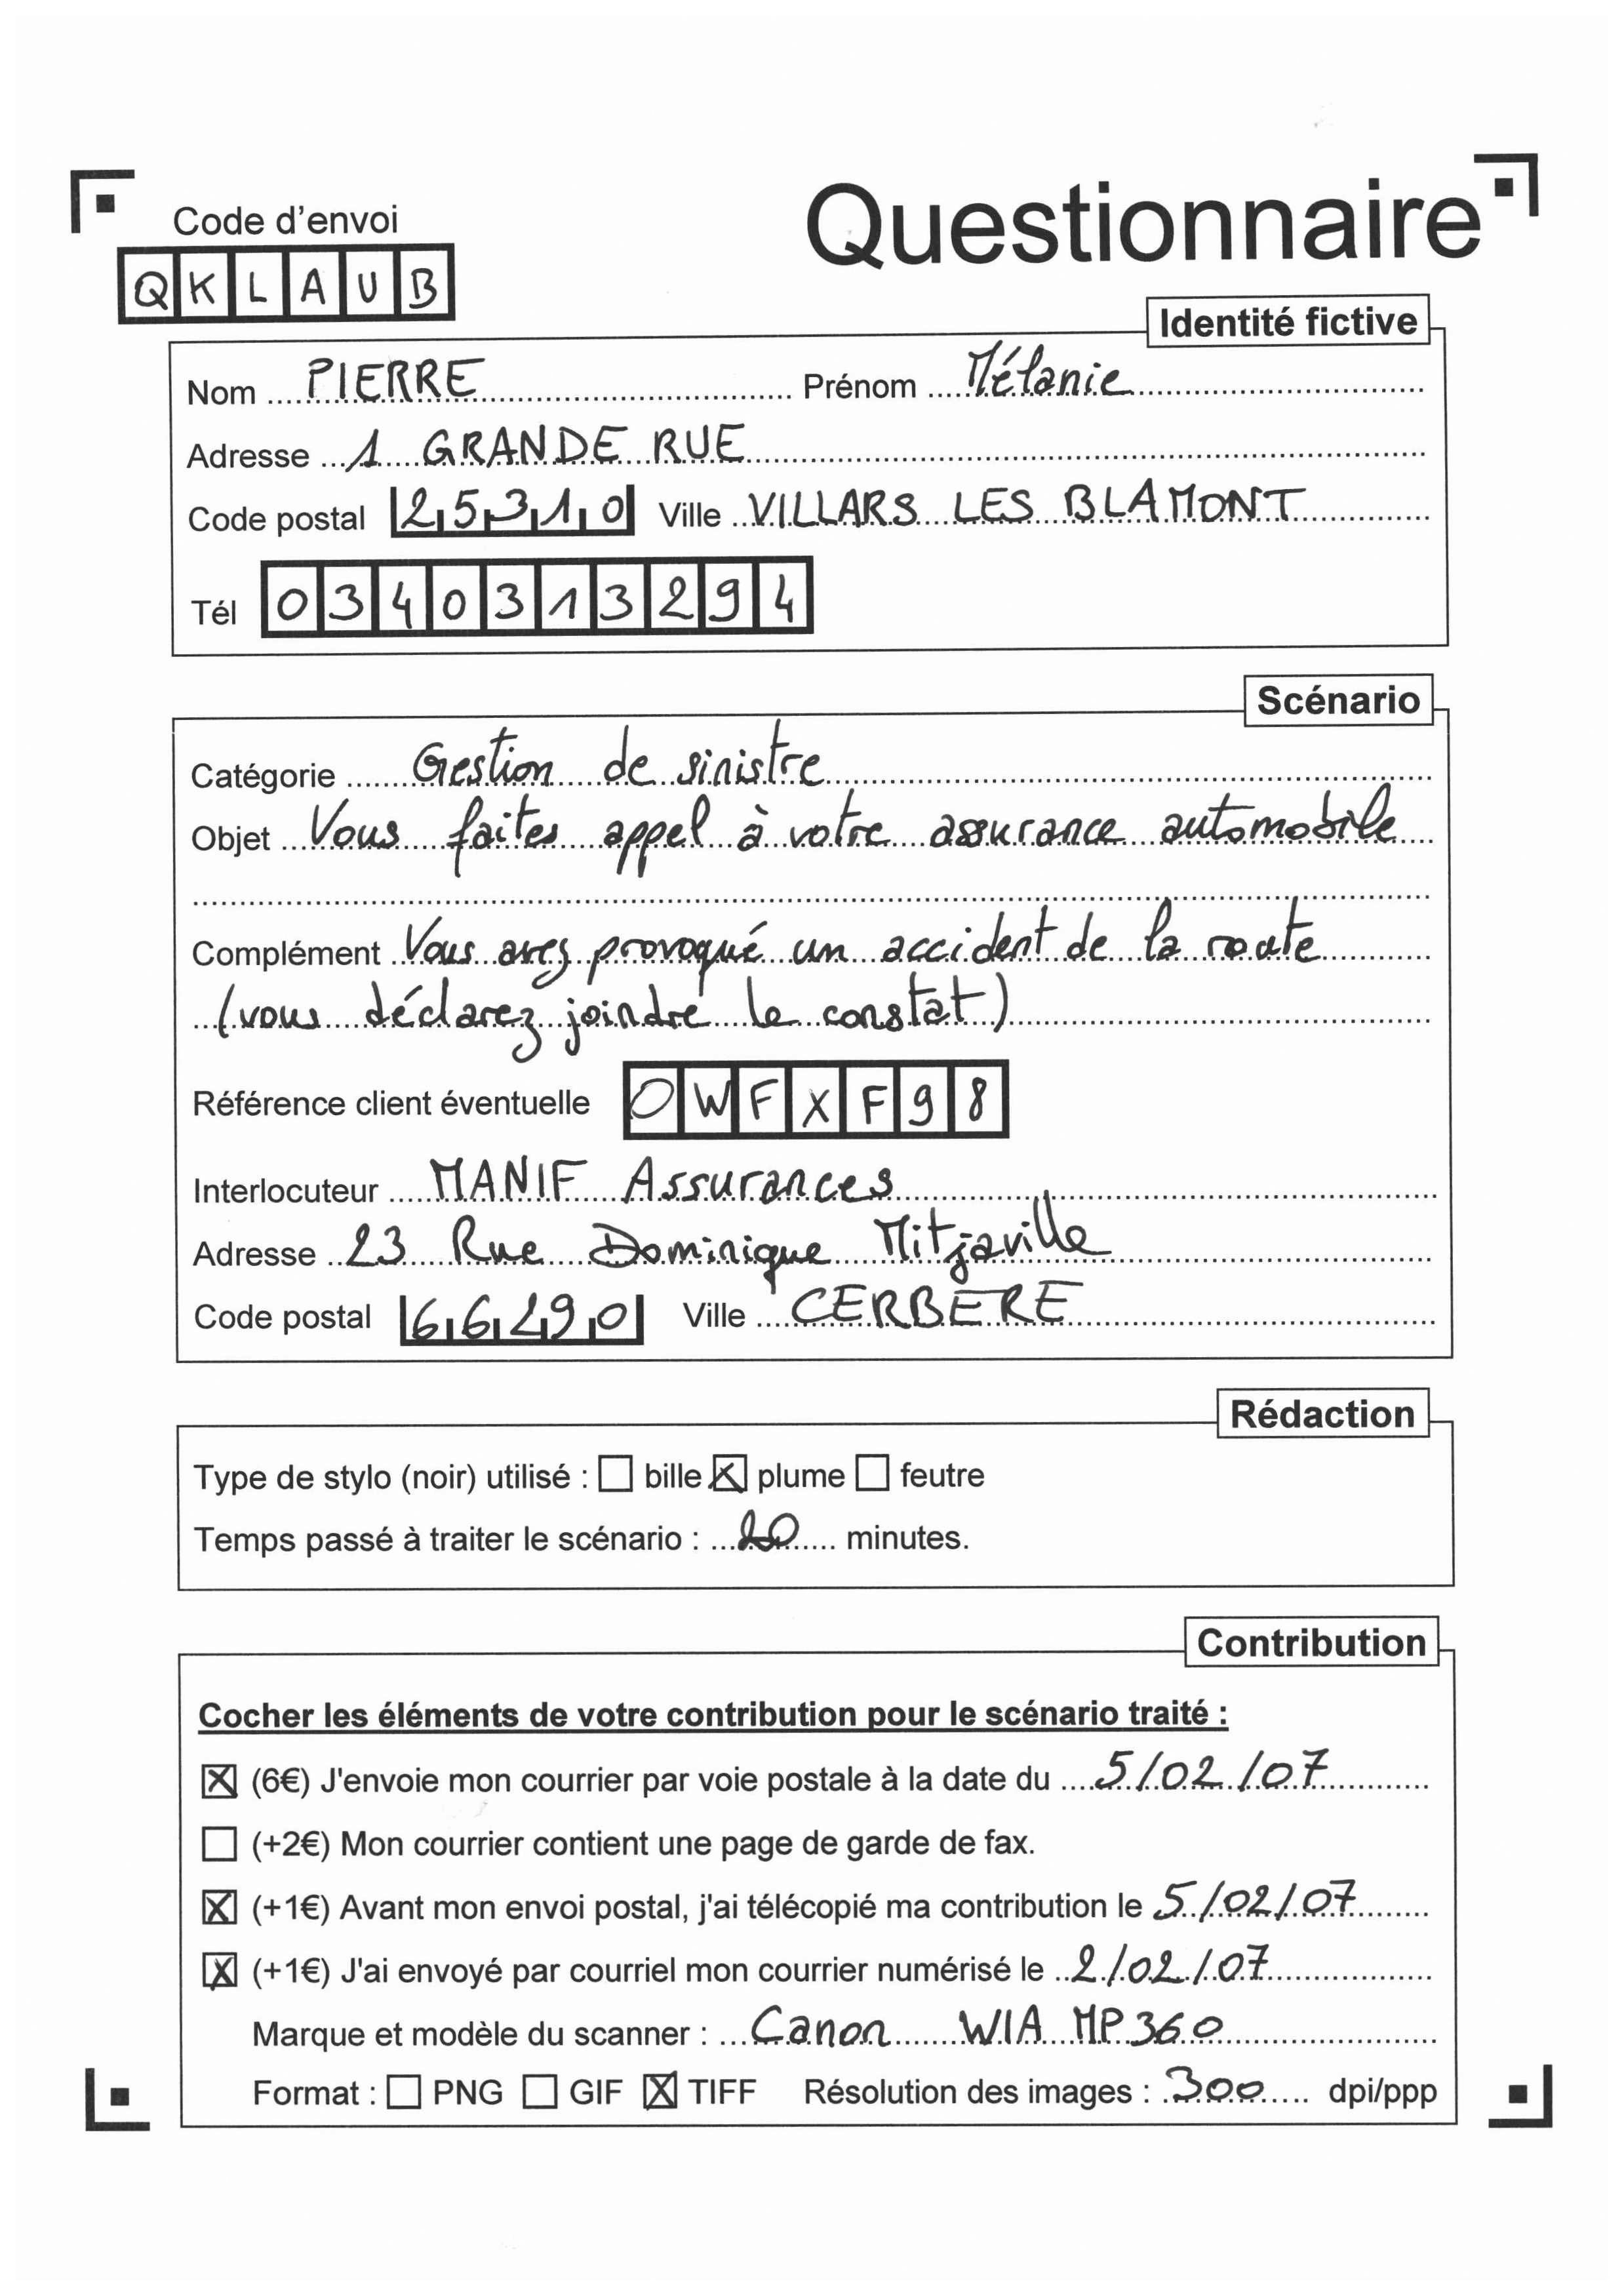 Code d'envoi
Questionnaire
QKLAUB
Identité fictive
Nom PIERRE Prénom Mélanie
Adresse 1 GRANDE RUE
Code postal 25310 Ville VILLARS LES BLAMONT
Tél 0340313294
Scénario
Catégorie Gestion de sinistre
Objet Vous faites appel à votre assurance automobile
Complément Vous avez provoqué un accident de la route
(vous déclarez joindre le constat)
Référence client éventuelle OWFXF98
Interlocuteur MANIF Assurances
Adresse 23 Rue Dominique Mitjaville
Code postal 66290 Ville CERBERE
Rédaction
Type de stylo (noir) utilisé : ☐ bille ☒ plume ☐ feutre
Temps passé à traiter le scénario : 20 minutes.
Contribution
Cocher les éléments de votre contribution pour le scénario traité :
☒ (6€) J'envoie mon courrier par voie postale à la date du 5/02/07
☐ (+2€) Mon courrier contient une page de garde de fax.
☒ (+1€) Avant mon envoi postal, j'ai télécopié ma contribution le 5/02/07
☒ (+1€) J'ai envoyé par courriel mon courrier numérisé le 2/02/07
Marque et modèle du scanner : Canon WIA MP360
Format : ☐ PNG ☐ GIF ☒ TIFF Résolution des images : 300 dpi/ppp